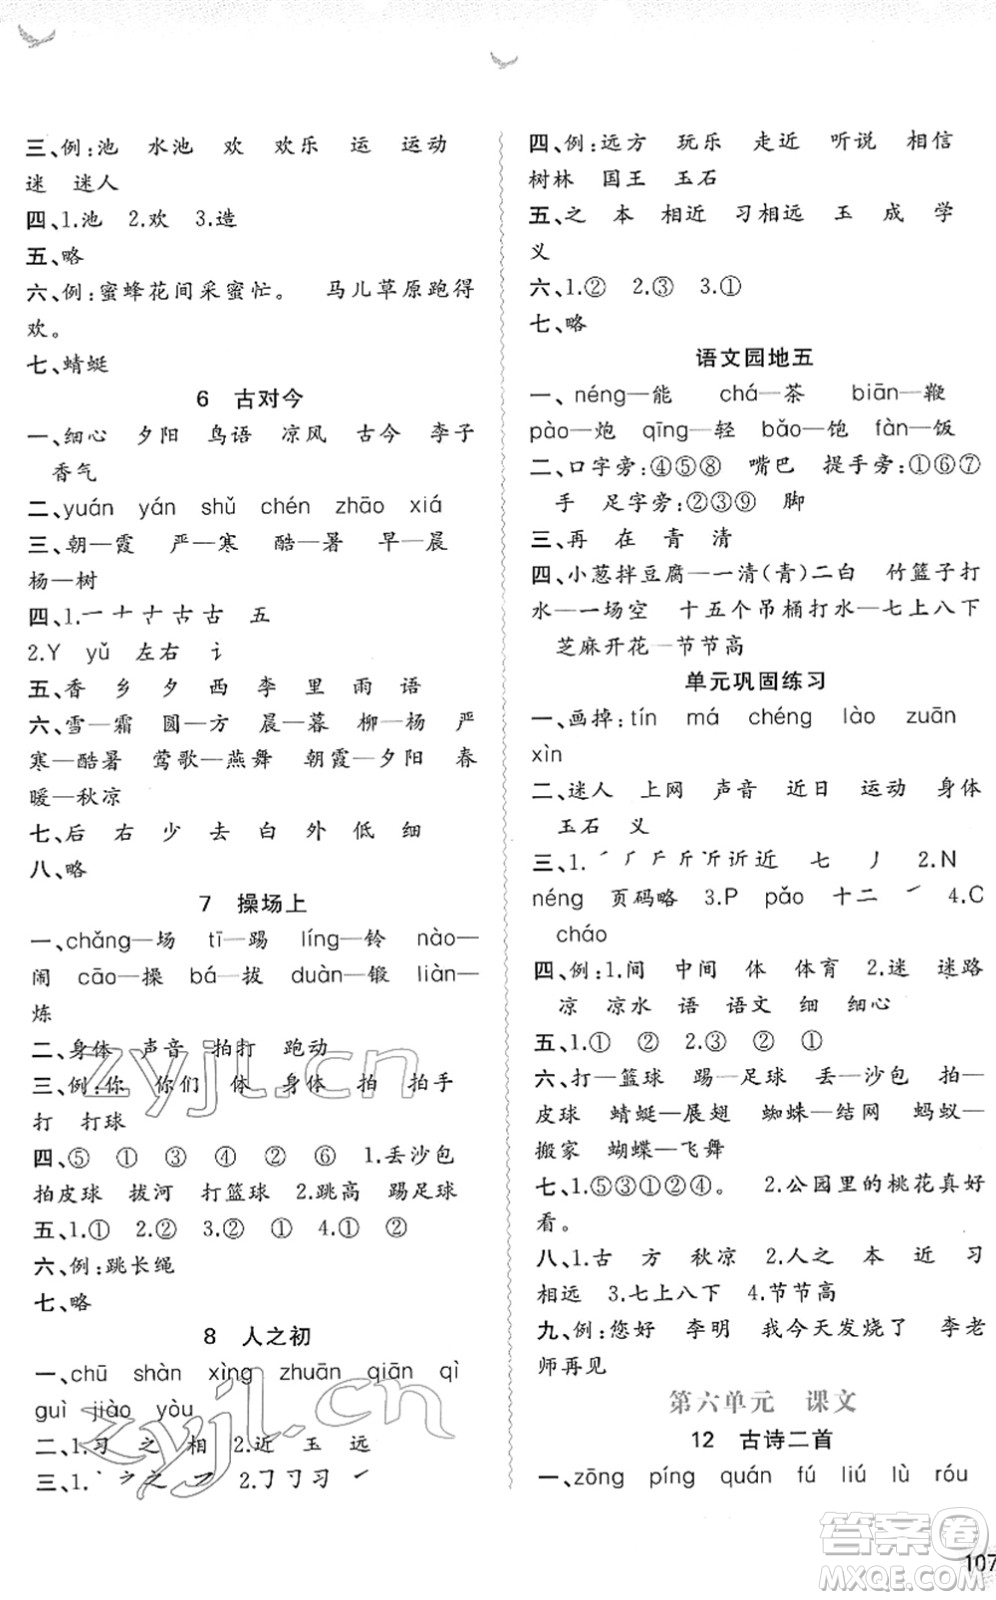 三、例:池 水池 欢 欢乐 运 运动
迷 迷人
四、1.池 2.欢 3.造
五、略
六、例:蜜蜂花间采蜜忙。 马儿草原跑得
欢。
七、蜻蜓
6 古对今
一、细心 夕阳 鸟语 凉风 古今 李子
香气
二、yuán yán shǔ chén zhāo xiá
三、朝—霞 严—寒 酷—暑 早—晨
杨—树
四、1.一 十 古 古 五
2.Y yǔ 左右 讠
五、香 乡 夕 西 李 里 雨 语
六、雪—霜 圆—方 晨—暮 柳—杨 严
寒—酷暑 莺歌—燕舞 朝霞—夕阳 春
暖—秋凉
七、后 右 少 去 白 外 低 细
八、略
7 操场上
一、chǎng—场 tī—踢 líng—铃 nào—
闹 cāo—操 bá—拔 duàn—锻 liàn—
炼
二、身体 声音 拍打 跑动
三、例:你 你们 体 身体 拍 拍手
打 打球
四、⑤ ① ③ ④ ② ⑥ 1.丢沙包
拍皮球 拔河 打篮球 2.跳高 踢足球
五、1.① 2.② ③ ② ① 4.① ②
六、例:跳长绳
七、略
8 人之初
一、chū shàn xìng zhuān qiān qì
guì jiào yòu
二、1.习 之 相 2.近 玉 远
三、1.丶 之 2.习
四、例:远方 玩乐 走近 听说 相信
树林 国王 玉石
五、之 本 相近 习相远 玉 成 学
义
六、1.② 2.③ 3.①
七、略
语文园地五
一、néng—能 chá—茶 biān—鞭
pào—炮 qīng—轻 bǎo—饱 fàn—饭
二、口字旁:④⑤⑧ 嘴巴 提手旁:①⑥⑦
手 足字旁:②③⑨ 脚
三、再 在 青 清
四、小葱拌豆腐—一清(青)二白 竹篮子打
水—一场空 十五个吊桶打水—七上八下
芝麻开花—节节高
单元巩固练习
一、画掉:tín má chéng lào zuān
xìn
二、迷人 上网 声音 近日 运动 身体
玉石 义
三、1. 厂 斤 近 七 丿 2.N
néng 页码略 3.P pǎo 十二 4.C
cháo
四、例:1.间 中间 体 体育 2.迷 迷路
凉 凉水 语 语文 细 细心
五、1.① ① ② 2.② ①
六、打—篮球 踢—足球 丢—沙包 拍—
皮球 蜻蜓—展翅 蜘蛛—结网 蚂蚁—
搬家 蝴蝶—飞舞
七、1.⑤③①②④。 2.公园里的桃花真好
看。
八、1.古 方 秋凉 2.人之 本 近 习
相远 3.七上八下 4.节节高
九、例:您好 李明 我今天发烧了 李老
师再见
第六单元 课文
12 古诗二首
一、zōng píng quán fú liú lù róu
107
zyjl.cn
zyjl.cn
答案卷
MXQE.COM